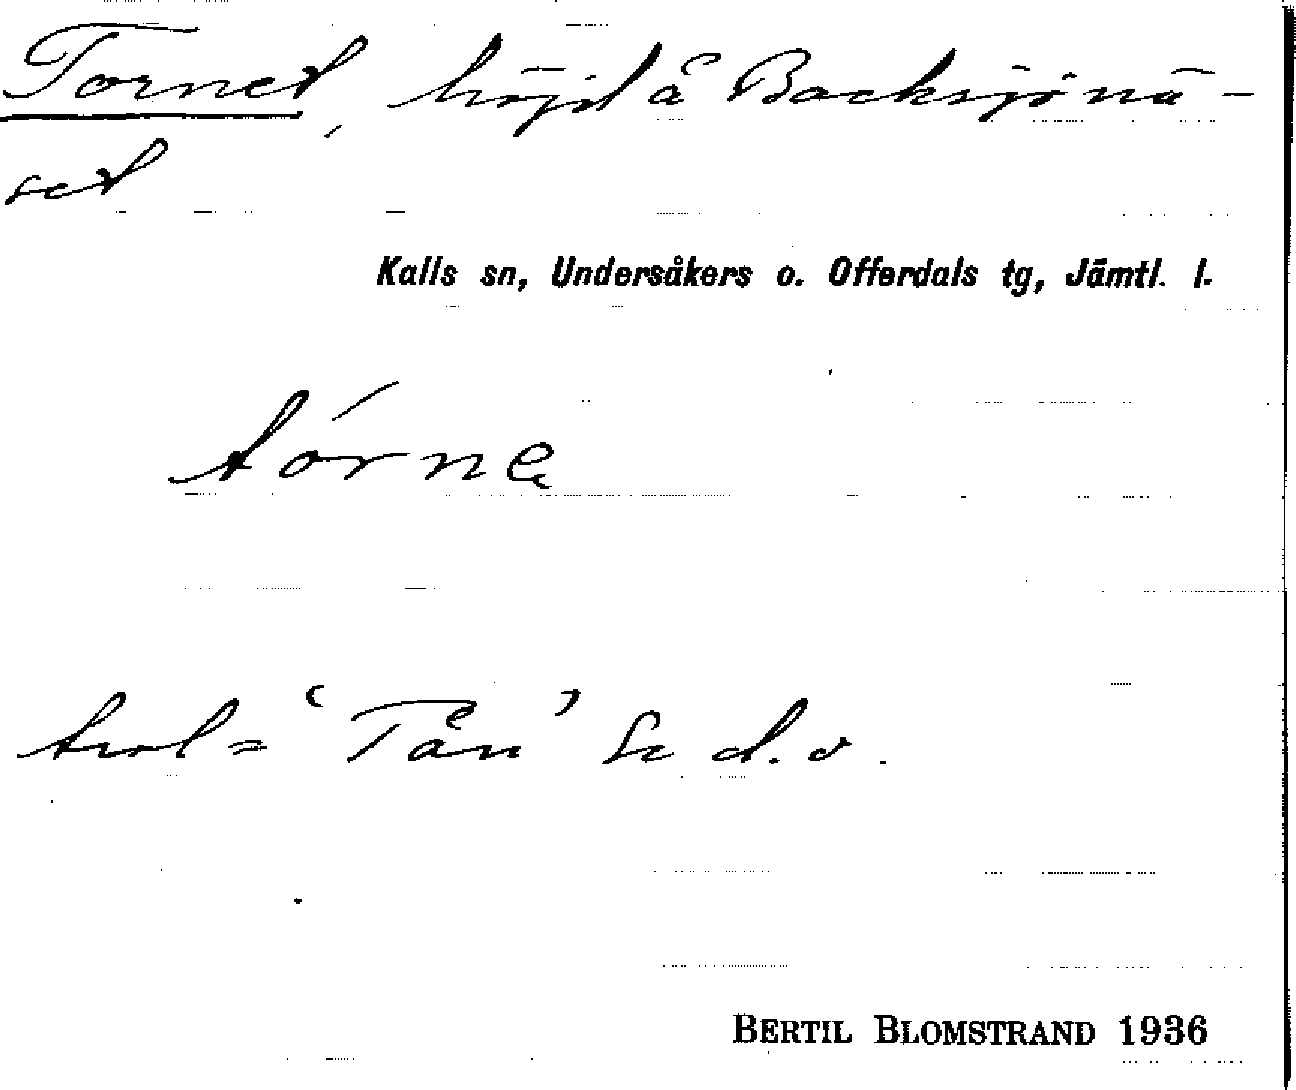 Tornet, höjd å Backsjönä-
set
Kalls sn, Undersåkers o. Offerdals tg, Jämtl. l.
tórne
trol = 'Tån' Se d. o.
BERTIL BLOMSTRAND 1936